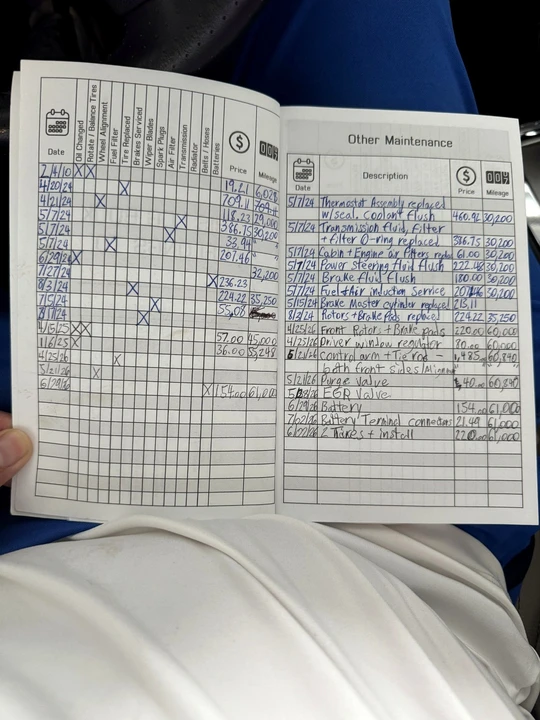 Date
Oil Changed
Rotate / Balance Tires
Wheel Alignment
Fuel Filter
Tire Replaced
Brakes Serviced
Wiper Blades
Spark Plugs
Air Filter
Transmission
Radiator
Belts / Hoses
Batteries
Price
Mileage
X X
4/20/24 X 19.21 6,028
4/21/24 X 709.11
5/7/24 X 118.23 29,000
5/7/24 X 386.75 30,200
5/7/24 X 33.94 "
6/29/24 X 207.46 "
7/27/24 32,200
8/3/24 X X 236.23
7/5/24 X 224.22 35,250
8/1/24 X 55.08
4/15/25 X X
11/6/25 X 57.00 45,000
4/25/26 X 36.00 55,248
5/21/26 X
6/29/26 X 154.00 61,000
Other Maintenance
Date Description Price Mileage
5/7/24 Thermostat Assembly replaced
w/seal. coolant flush 460.92 30,200
5/7/24 Transmission fluid, filter
+ filter O-ring replaced 386.75 30,200
5/7/24 Cabin + Engine air filters repla 61.00 30,200
5/7/24 Power steering fluid flush 222.48 30,200
5/7/24 Brake fluid flush 180.00 30,200
5/7/24 Fuel + Air induction Service 207.46 30,200
5/15/24 Brake Master cylinder replaced 215.11
8/3/24 Rotors + Brake Pads replaced 224.22 35,250
4/25/26 Front Rotors + Brake pads 220.00 60,000
4/25/26 Driver window regulator 70.00 60,000
5/21/26 control arm + Tie rod - 1,485.00 60,840
both front sides/Alignment
5/21/26 Purge valve 40.00 60,840
EGR Valve
6/29/26 Battery 154.00 61,000
7/02/26 Battery Terminal connectors 21.49 61,000
6/22/26 2 Tires + install 220.00 61,000